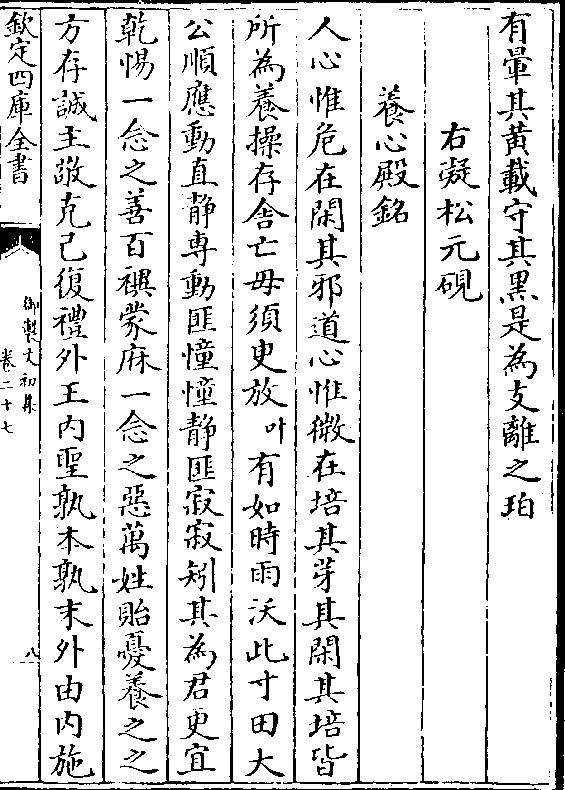 有暈其黄載守其黒是為支離之珀
右凝松元硯
養心殿銘
人心惟危在閑其邪道心惟微在培其芽其閑其培皆
所為養操存舎亡毋須臾放叶有如時雨沃此寸田大
公順應動直静専動匪憧憧静匪寂寂矧其為君更宜
乾惕一念之善百禩蒙庥一念之惡萬姓貽憂養之之
方存誠主敬克己復禮外王内聖孰本孰末外由内施
欽定四庫全書
御製文初集
卷二十七
八